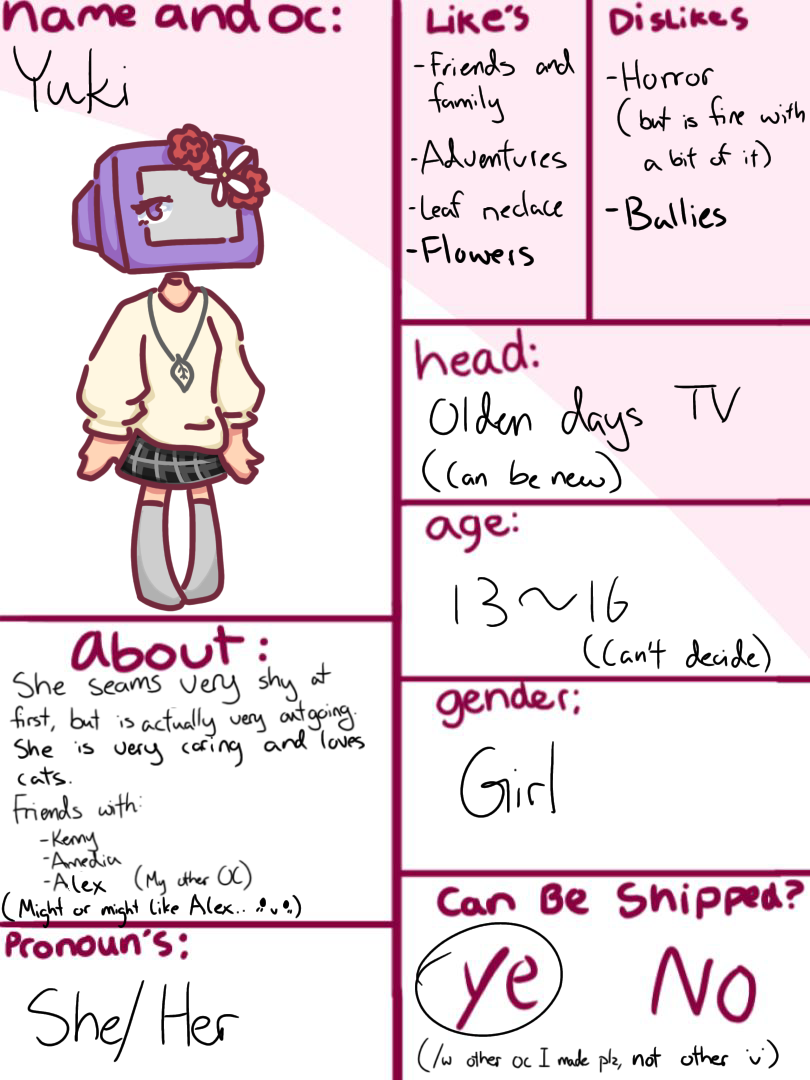 name and oc:
Yuki
Like's
-Friends and
family
-Adventures
-Leaf neclace
-Flowers
Dislikes
-Horror
(but is fine with
a bit of it)
-Bullies
head:
Olden days TV
(Can be new)
age:
13~16
(Can't decide)
gender:
Girl
about:
She seams very shy at
first, but is actually very outgoing.
She is very caring and loves
cats.
Friends with:
-Kenny
-Amedia
-Alex (My other OC)
(Might or might like Alex..)
Pronoun's:
She/Her
Can Be Shipped?
Ye No
(/w other oc I made plz, not other :v:)